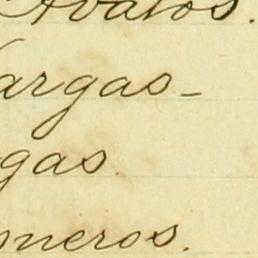 Avalos.
Vargas_
gas.
meros.